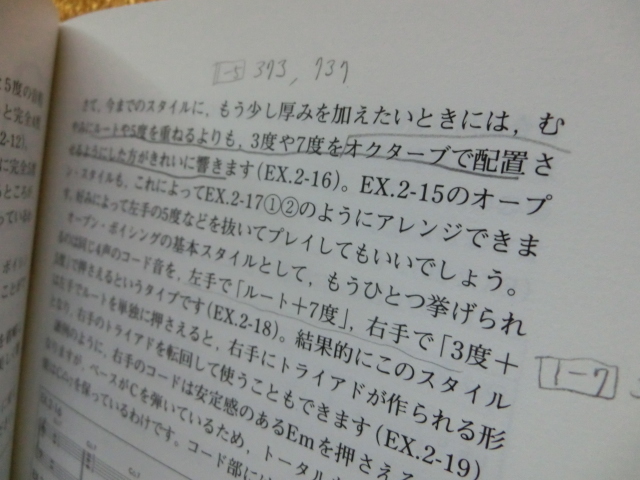 1-5 373, 737
さて、今までのスタイルに、もう少し厚みを加えたいときには、む
やみにルートや5度を重ねるよりも、3度や7度をオクターブで配置さ
せるようにした方がきれいに響きます(EX.2-16)。EX.2-15のオープ
ン・スタイルも、これによってEX.2-17①②のようにアレンジできま
す。好みによって左手の5度などを抜いてプレイしてもいいでしょう。
オープン・ボイシングの基本スタイルとして、もうひとつ挙げられ
るのは同じ4声のコード音を、左手で「ルート+7度」、右手で「3度+
5度」で押さえるというタイプです(EX.2-18)。結果的にこのスタイル
は左手でルートを単独に押さえると、右手にトライアドが作られる形
となり、右手のトライアドを転回して使うこともできます(EX.2-19)
のように、右手のコードは安定感のあるEmを押さえる
なりますが、ベースがCを弾いているため、トータル
を保っているわけです。コード部に
1-7
は5度の音程
と完全4度
2-12)。
に完全5度
るところが
っているわ